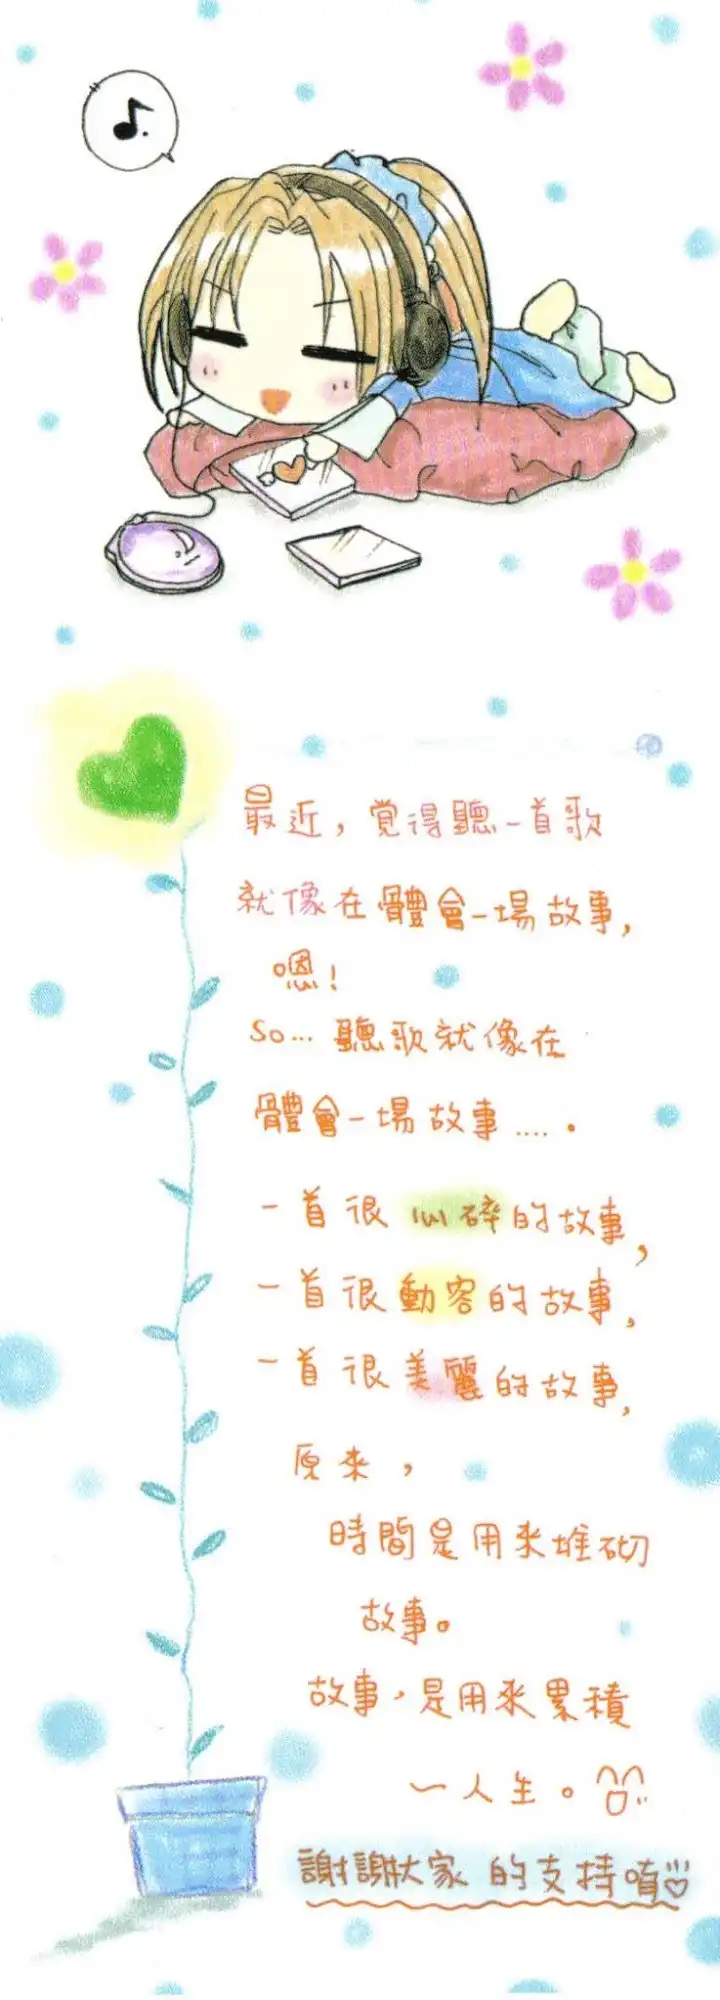 最近，覚得聽一首歌
就像在體會一場故事，
嗯！
So... 聽歌就像在
體會一場故事.....。
一首很心碎的故事，
一首很動容的故事，
一首很美麗的故事，
原來，
時間是用來堆砌
故事。
故事，是用來累積
一人生。
謝謝大家的支持唷